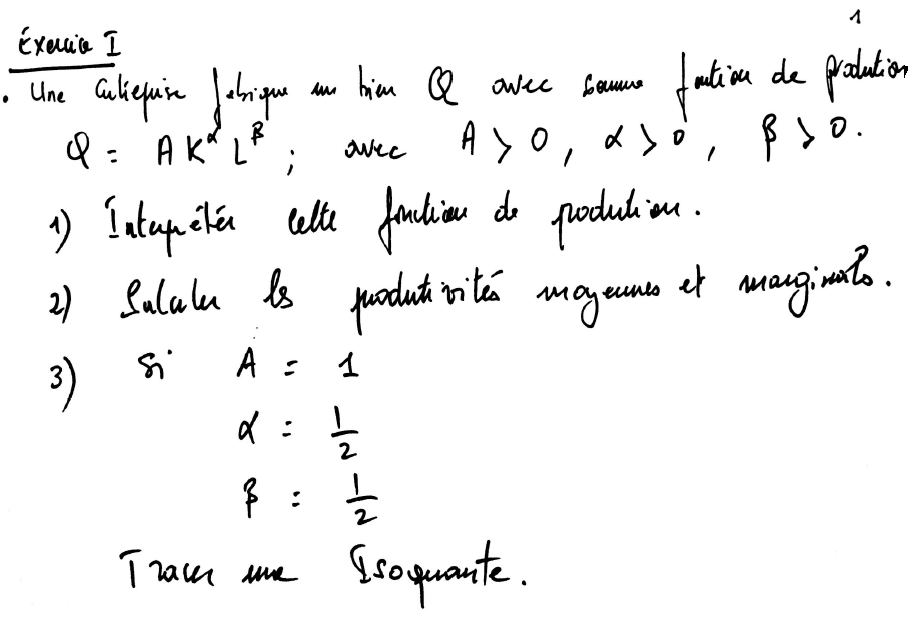 1
Éxercice I
. Une Entreprise fabrique un bien Q avec comme fontion de prodution
Q = A K^α L^β ; avec A > 0 , α > 0 , β > 0.
1) Interpréter cette fonction de prodution.
2) Calculer les produtivités moyennes et marginales.
3) Si A = 1
α = 1/2
β = 1/2
Tracer une Isoquante.